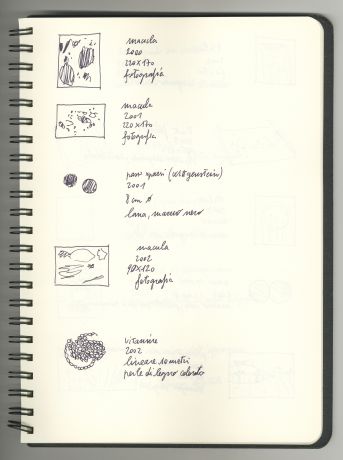 macula
2000
220x170
fotografia
macula
2001
220x170
fotografia
(wittgenstein)
2001
8 cm ø
lana, nero
macula
2002
90x120
fotografia
vitamine
2002
lineare 10 metri
perle di legno colorato